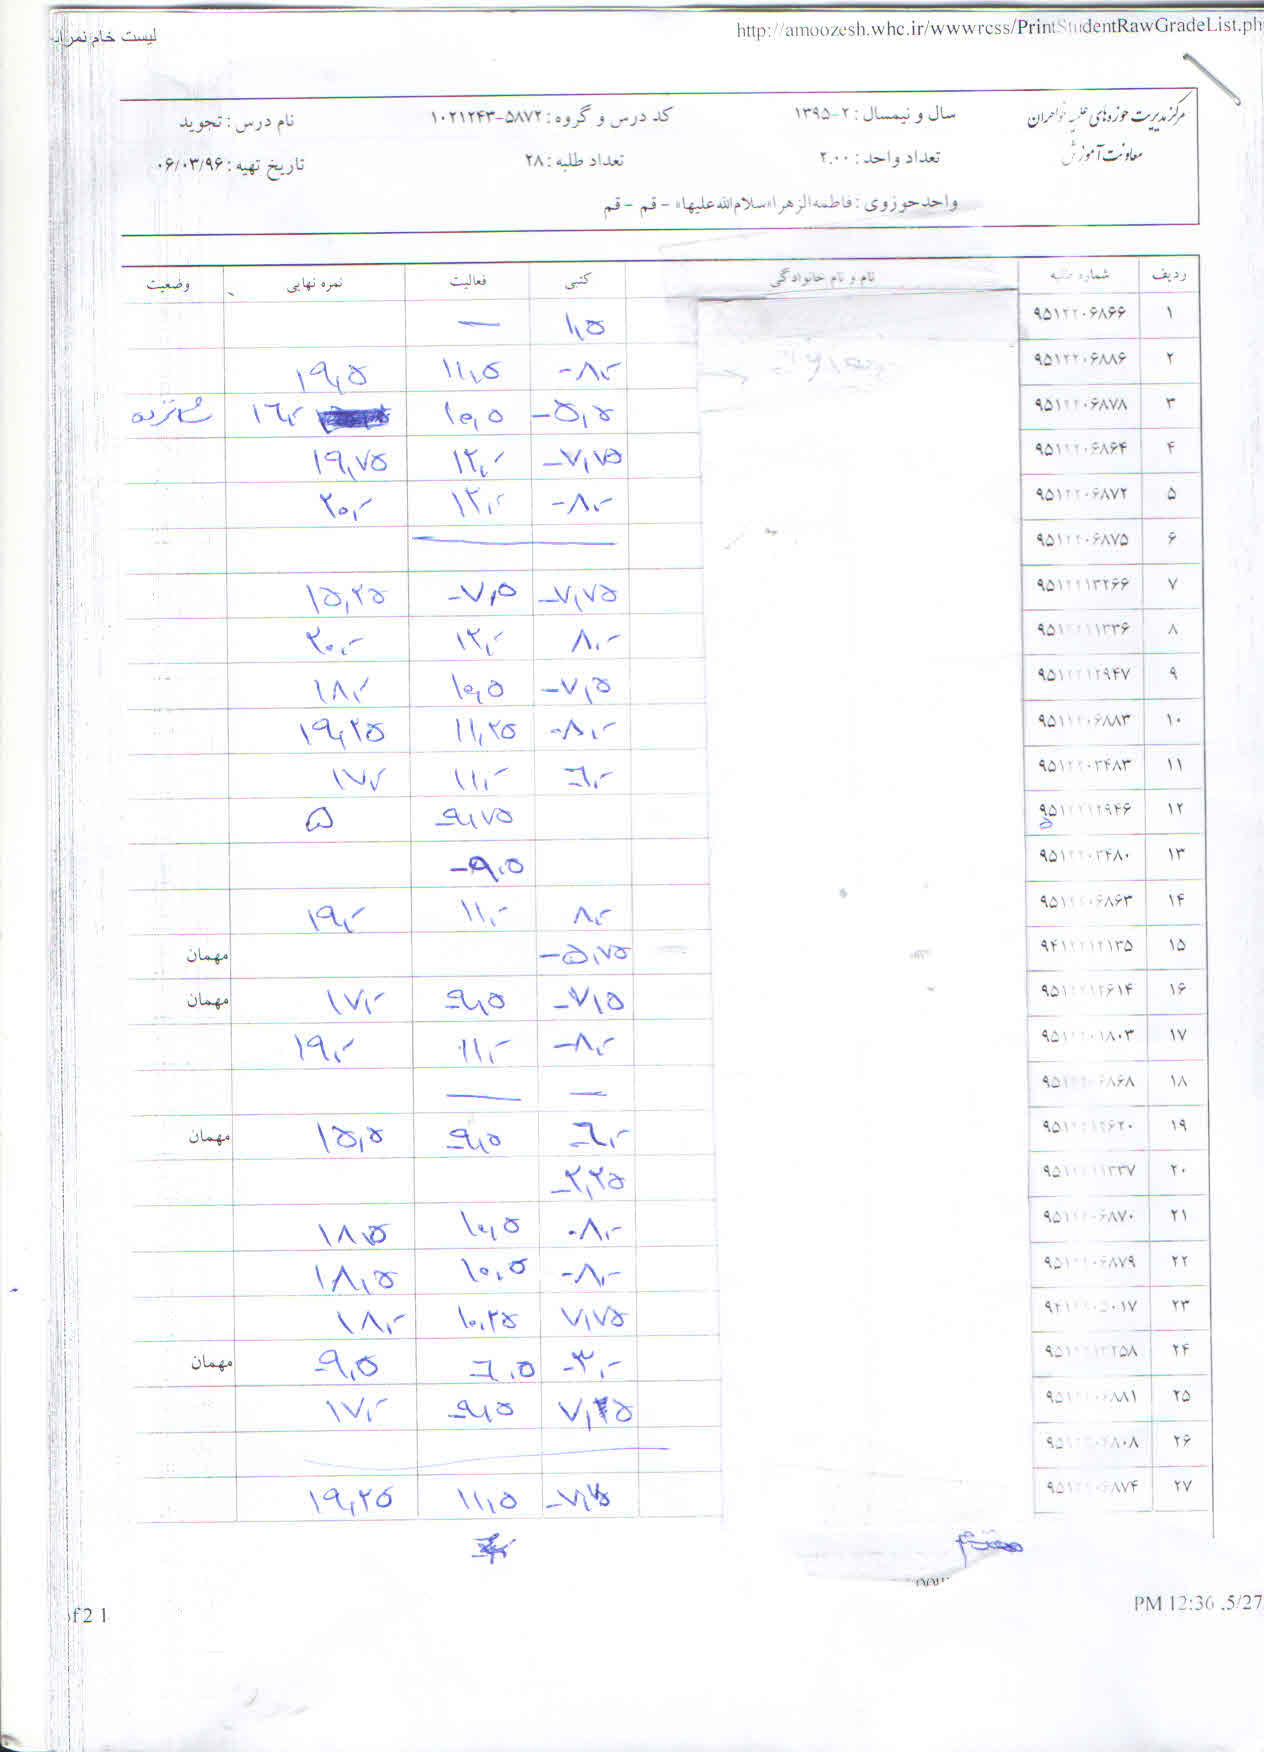 لیست خام نمرات http://amoozesh.whc.ir/wwwrcss/PrintStudentRawGradeList.ph
مرکز مدیریت حوزه‌های علمیه خواهران سال و نیمسال : ۲-۱۳۹۵ کد درس و گروه : ۵۸۷۲-۱۰۲۱۲۴۳ نام درس : تجوید
معاونت آموزش تعداد واحد : ۲.۰۰ تعداد طلبه : ۲۸ تاریخ تهیه : ۰۶/۰۳/۹۶
واحد حوزوی : فاطمه الزهرا«سلام الله علیها» - قم - قم
ردیف شماره طلبه نام و نام خانوادگی کتبی فعالیت نمره نهایی وضعیت
۱ ۹۵۱۲۲۰۶۸۶۶ ۱,۵ —
۲ ۹۵۱۲۲۰۶۸۸۶ ۸,- ۱۱,۵ ۱۹,۵
۳ ۹۵۱۲۲۰۶۸۷۸ ۵,۵ ۱۰,۵ ۱۶,- شانزده
۴ ۹۵۱۲۲۰۶۸۶۴ ۷,۷۵ ۱۲,- ۱۹,۷۵
۵ ۹۵۱۲۲۰۶۸۷۲ ۸,- ۱۲,- ۲۰,-
۶ ۹۵۱۲۲۰۶۸۷۵ —
۷ ۹۵۱۲۲۱۳۲۶۶ ۷,۷۵ ۷,۵ ۱۵,۲۵
۸ ۹۵۱۲۲۱۱۳۳۶ ۸,- ۱۲,- ۲۰,-
۹ ۹۵۱۲۲۱۲۹۴۷ ۷,۵ ۱۰,۵ ۱۸,-
۱۰ ۹۵۱۲۲۰۶۸۸۳ ۸,- ۱۱,۲۵ ۱۹,۲۵
۱۱ ۹۵۱۲۲۰۳۴۸۳ ۶,- ۱۱,- ۱۷,-
۱۲ ۹۵۱۲۲۱۲۹۴۶ ۹,۷۵ ۵
۱۳ ۹۵۱۲۲۰۳۴۸۰ ۹,۵
۱۴ ۹۵۱۲۲۰۶۸۶۳ ۸,- ۱۱,- ۱۹,-
۱۵ ۹۴۱۲۲۱۲۱۳۵ ۵,۷۵ مهمان
۱۶ ۹۵۱۲۲۱۲۶۱۴ ۷,۵ ۹,۵ ۱۷,- مهمان
۱۷ ۹۵۱۲۲۰۱۸۰۳ ۸,- ۱۱,- ۱۹,-
۱۸ ۹۵۱۲۲۰۶۸۶۸ — —
۱۹ ۹۵۱۲۲۱۲۶۲۰ ۶,- ۹,۵ ۱۵,۵ مهمان
۲۰ ۹۵۱۲۲۱۱۳۳۷ ۲,۲۵
۲۱ ۹۵۱۲۲۰۶۸۷۰ ۸,- ۱۰,۵ ۱۸,۵
۲۲ ۹۵۱۲۲۰۶۸۷۹ ۸,- ۱۰,۵ ۱۸,۵
۲۳ ۹۴۱۲۲۰۵۰۱۷ ۷,۷۵ ۱۰,۲۵ ۱۸,-
۲۴ ۳,- ۶,۵ ۹,۵ مهمان
۲۵ ۹۵۱۲۲۰۶۸۸۱ ۷,۲۵ ۹,۵ ۱۷,-
۲۶ —
۲۷ ۹۵۱۲۲۰۶۸۷۴ ۷,۷۵ ۱۱,۵ ۱۹,۲۵
of 2 1 PM 12:36 ,5/27